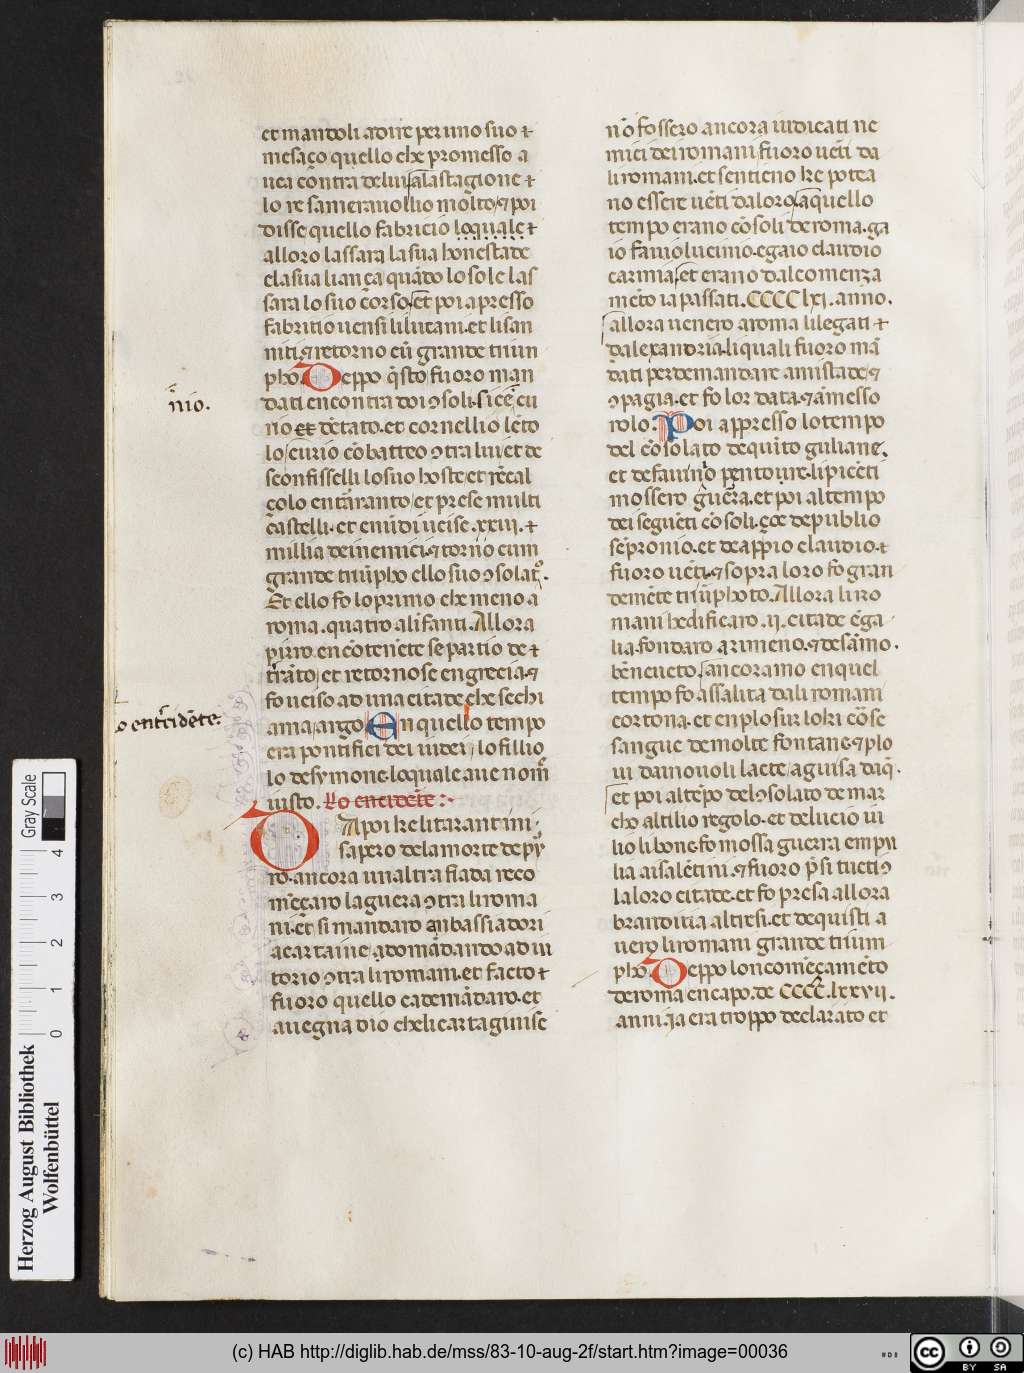 et mandoli a dire per uno suo et
mesaço quello che promesso a
uea cōntra de lui a la stagione et
lo re samerauollio molto ⁊ poi
disse quello fabricio lo quale et
alloro lassara la sua honesta de
ela sua liança quādo lo sole las
sara lo suo corso. et poi apresso
fabritio uensi li lucani. et li san
niti ⁊ retorno cū grande triun
pho. Deppo q̄sto fuoro man
dati encontra doi ꝯsoli. si cē cu
rio et dētato. et cornellio lēto
lo. curio cōbatteo ꝯtra lui et de
sconfisselli lo suo hoste et rēcal
colo
castelli. et
millia de inemici ⁊ torno cum
grande triūpho ello suo ꝯsolato.
Et ello fo lo primo che meno a
roma quatro alifanti. Allora
pirro encōtenēte se partio de
trāto et retornose en grecia ⁊
fo uciso ad una citade che se chi
ama argo. En quello tempo
era pontifici dei iudei lo fillio
lo de symone lo quale aue nom̄
iusto. Lo encidēte:
Da poi ke li tarantini
sapero de la morte de py
ro. ancora un altra fiada reco
mēçaro la guera ꝯtra li roma
ni. et si mandaro anbassiadori
a cartaine adomādando adiu
torio ꝯtra li romani. et facto
fuoro quello cademādaro. et
auegna dio cheli cartaginise
nō fossero ancora iudicati ne
mici dei romani fuoro uēti da
li romani. et sentieno ke potea
no essere uēti da loro. a quello
tempo erano cōsoli de roma. ga
io fauio lucinio. e gaio claudio
carmia. et erano dal comenza
mēto ia passati. CCCC lxi. anno.
allora uenero a roma li legati
dalexandria. li quali fuoro mā
dati per demandare amistade ⁊
ꝯpagia. et fo lor data. ⁊ amesso
rolo. Poi appresso lo tempo
del cōsolato de quito guliane.
et de fauino pentoure. li picēti
mossero guerra. et poi al tempo
dei seguēti cōsoli. çoe de publio
sēpronio. et de appio claudio.
fuoro uēti. ⁊ sopra loro fo gran
demēte triūphato. Allora li ro
mani hedificaro. ij. citade ē ga
lia. fondaro arimeno. ⁊ de sāmo.
bēneueto. ancoramo en quel
tempo fo assalita da li romani
cortona. et en plosur lok
sangue de molte fontane ⁊ plo
ui da nouoli lacte a guisa daq̄.
et poi al tēpo del ꝯsolato de mar
cho altilio regolo. et de lucio iu
lio libone. fo mossa guerra em pu
lia ai salētini. ⁊ fuoro p̄si tucti ꝯ
la loro citade. et fo presa allora
branditia altresi. et de quisti a
uero li romani grande trium
pho. Deppo lo ncomēçamēto
de roma en capo. de CCCC. lxxvii.
anni. ia era troppo declarato et
n̄io.
o entcidēte:
Gray Scale
0 1 2 3 4
Herzog August Bibliothek
Wolfenbüttel
(c) HAB http://diglib.hab.de/mss/83-10-aug-2f/start.htm?image=00036
cc BY SA